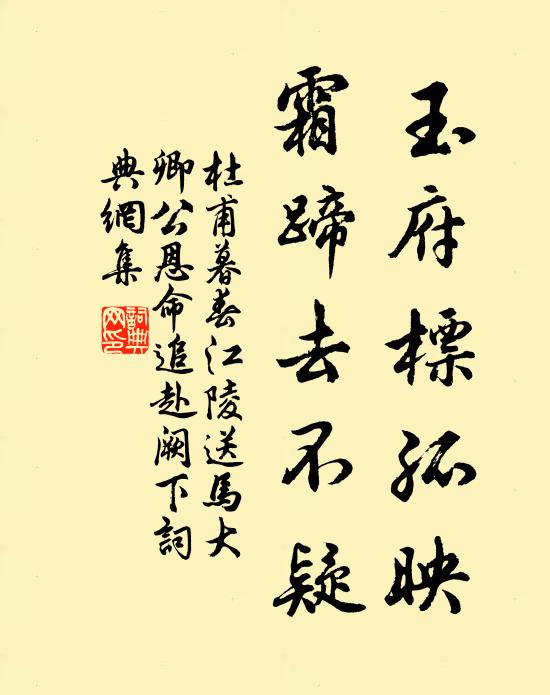 玉府標孤映
霜蹄去不疑
杜甫暮春江陵送馬大
卿公恩命追赴闕下詞
典網集
詞典
网印